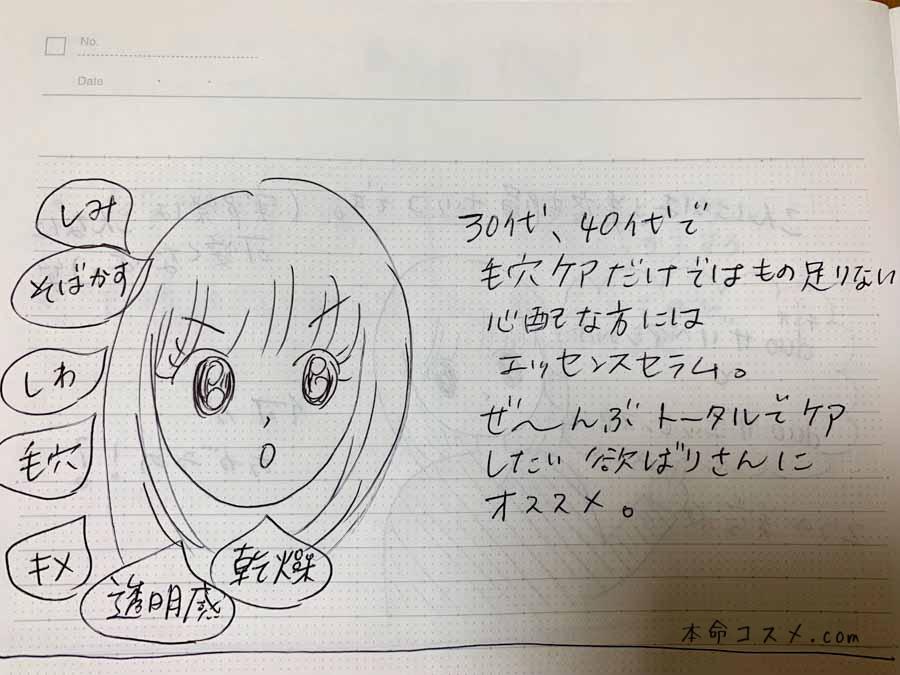 No.
Date
しみ
そばかす
しわ
毛穴
キメ
透明感
乾燥
30代、40代で
毛穴ケアだけではもの足りない
心配な方には
エッセンスセラム。
ぜ〜んぶトータルでケア
したい欲ばりさんに
オススメ。
本命コスメ.com